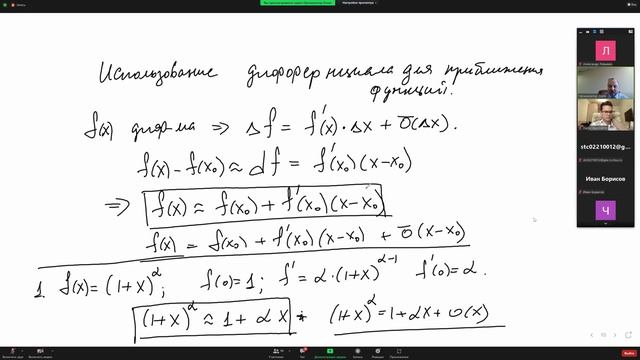 Использование дифференциала для приближения
функций.
f(x) диф-ма ⇒ Δf = f'(x)·Δx + ō(Δx).
f(x) - f(x₀) ≈ df = f'(x₀)(x-x₀)
⇒ f(x) ≈ f(x₀) + f'(x₀)(x-x₀)
f(x) = f(x₀) + f'(x₀)(x-x₀) + ō(x-x₀)
1. f(x) = (1+x)^α; f(0) = 1; f' = α·(1+x)^(α-1) f'(0) = α.
(1+x)^α ≈ 1 + αx. (1+x)^α = 1 + αx + o(x)
Л
stc02210012@g...
Иван Борисов
Иван Борисов
Ч